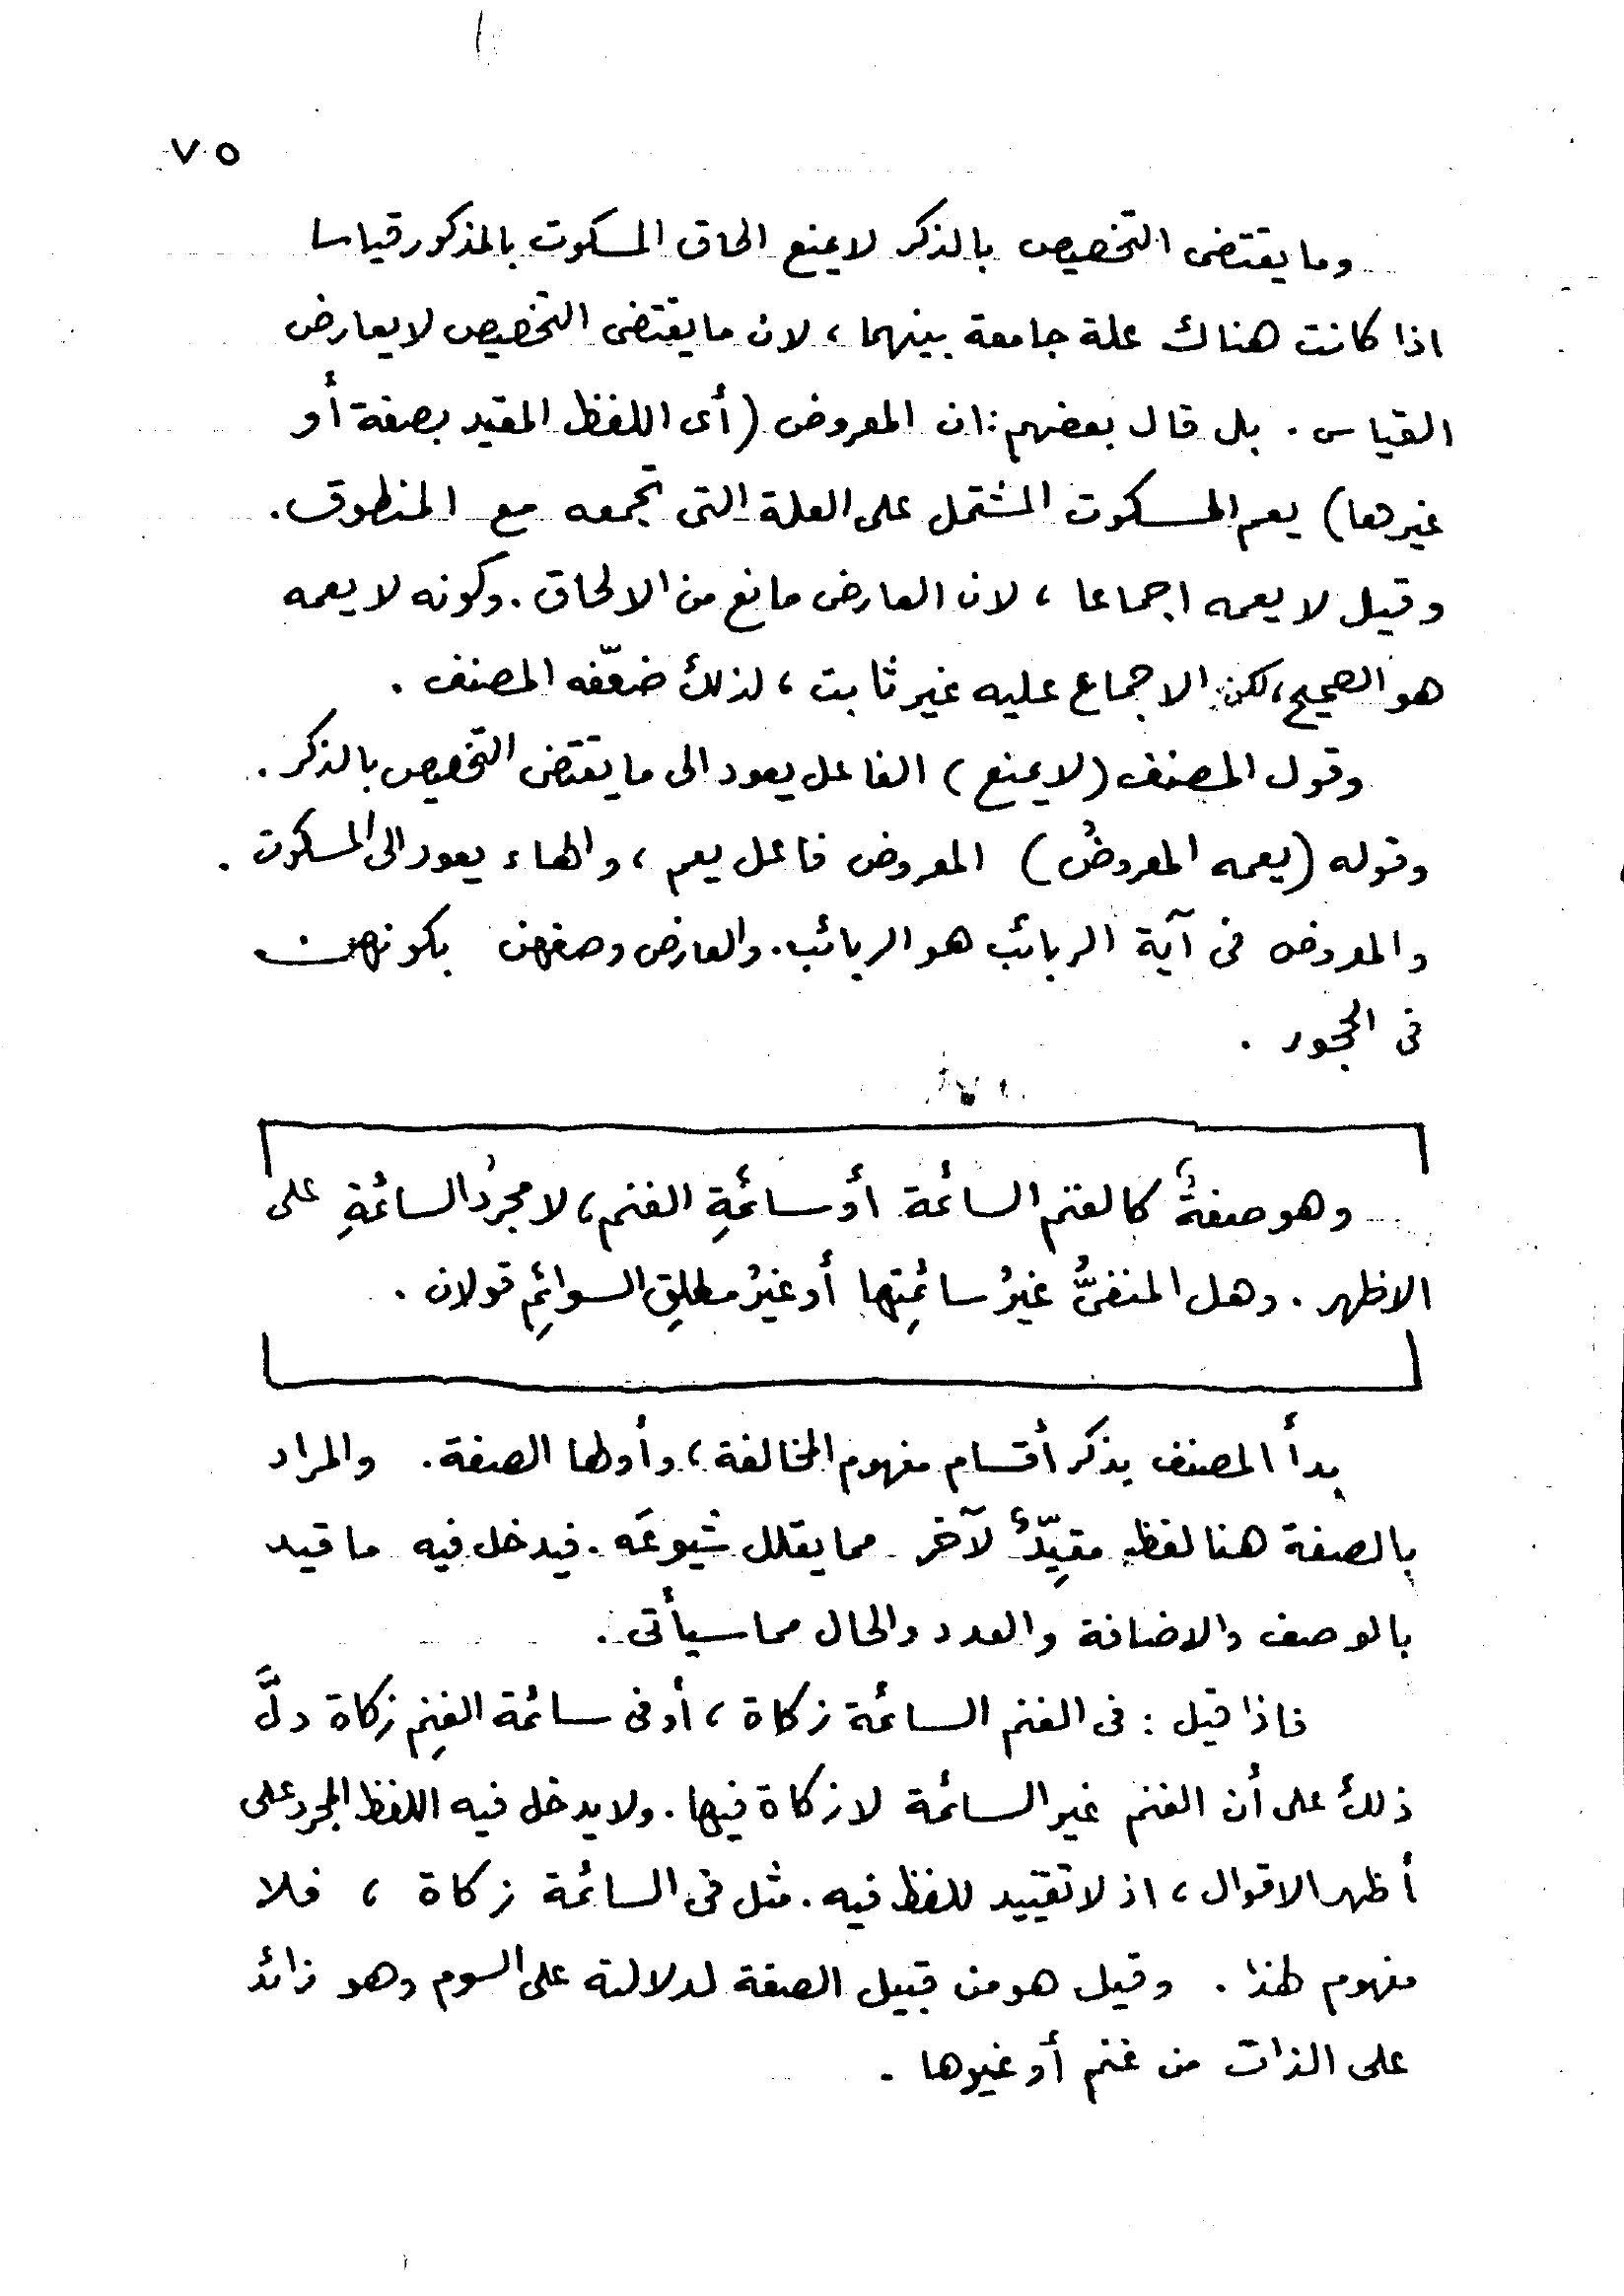 ٧٥
وما يقتضى التخصيص بالذكر لا يمنع الحاق المسكوت بالمذكور قياسا
اذا كانت هناك علة جامعة بينهما ، لان ما يقتضى التخصيص لا يعارض
القياس . بل قال بعضهم : ان المعروض (أى اللفظ المقيد بصفة أو
غيرها) يعم المسكوت المشتمل على العلة التى تجمعه مع المنطوق .
وقيل لا يعمه اجماعا ، لان العارض مانع من الالحاق . وكونه لا يعمه
هو الصحيح ، لكن الاجماع عليه غير ثابت ، لذلك ضعّفه المصنف .
وقول المصنف (لا يمنع) الفاعل يعود الى ما يقتضى التخصيص بالذكر .
وقوله (يعمه المعروضُ) المعروض فاعل يعم ، والهاء يعود الى المسكوت .
والمعروض فى آية الربائب هو الربائب . والعارض وصفهن بكونهن
فى الحجور .
وهو صفةٌ كالغنم السائمة أو سائمةِ الغنم ، لا مجردُ السائمةِ على
الاظهر . وهل المنفىُّ غيرُ سائمتِها أو غيرُ مطلقِ السوائمِ قولان .
بدأ المصنف بذكر أقسام مفهوم المخالفة ، وأولها الصفة . والمراد
بالصفة هنا لفظ مقيِّدٌ لآخر مما يقلل شيوعَه . فيدخل فيه ما قيد
بالوصف والاضافة والعدد والحال مما سيأتى .
فاذا قيل : فى الغنم السائمة زكاة ، أو فى سائمة الغنمِ زكاة دلَّ
ذلك على أن الغنم غير السائمة لا زكاة فيها . ولا يدخل فيه اللفظ المجرد على
أظهر الاقوال ، اذ لا تقييد للفظ فيه . مثل فى السائمة زكاة ، فلا
مفهوم لهذا . وقيل هو من قبيل الصفة لدلالته على السوم وهو زائد
على الذات من غنم أو غيرها .